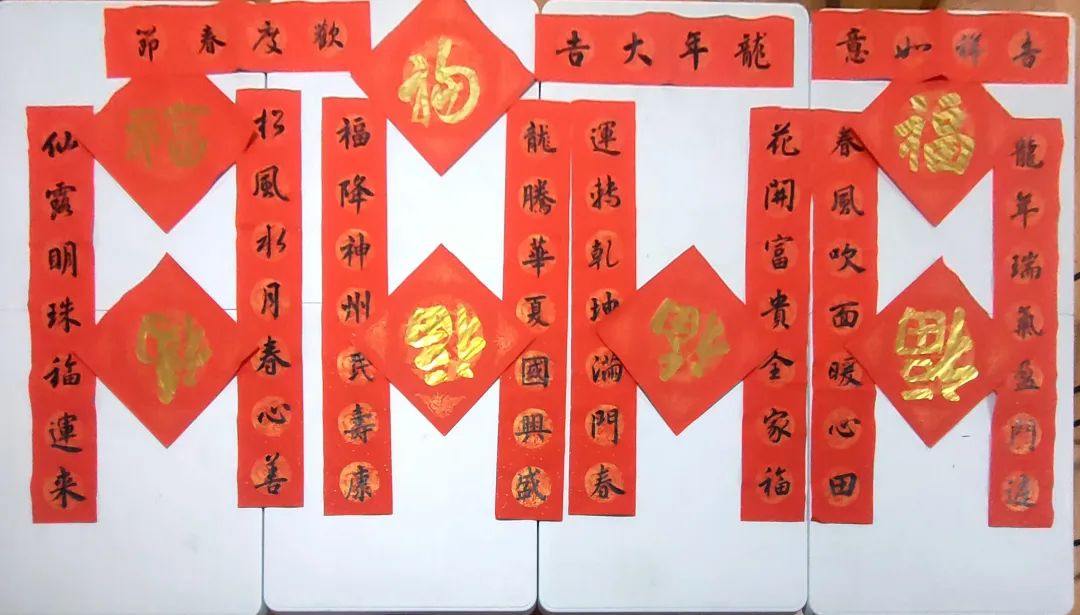 吉祥如意
福
龍年瑞氣盈門
春風吹面暖心田
福
龍年大吉
花開富貴全家福
運轉乾坤滿門春
福
福
龍騰華夏國興盛
福降神州民壽康
福
歡度春節
福
松風水月春心善
仙露明珠福運来
福